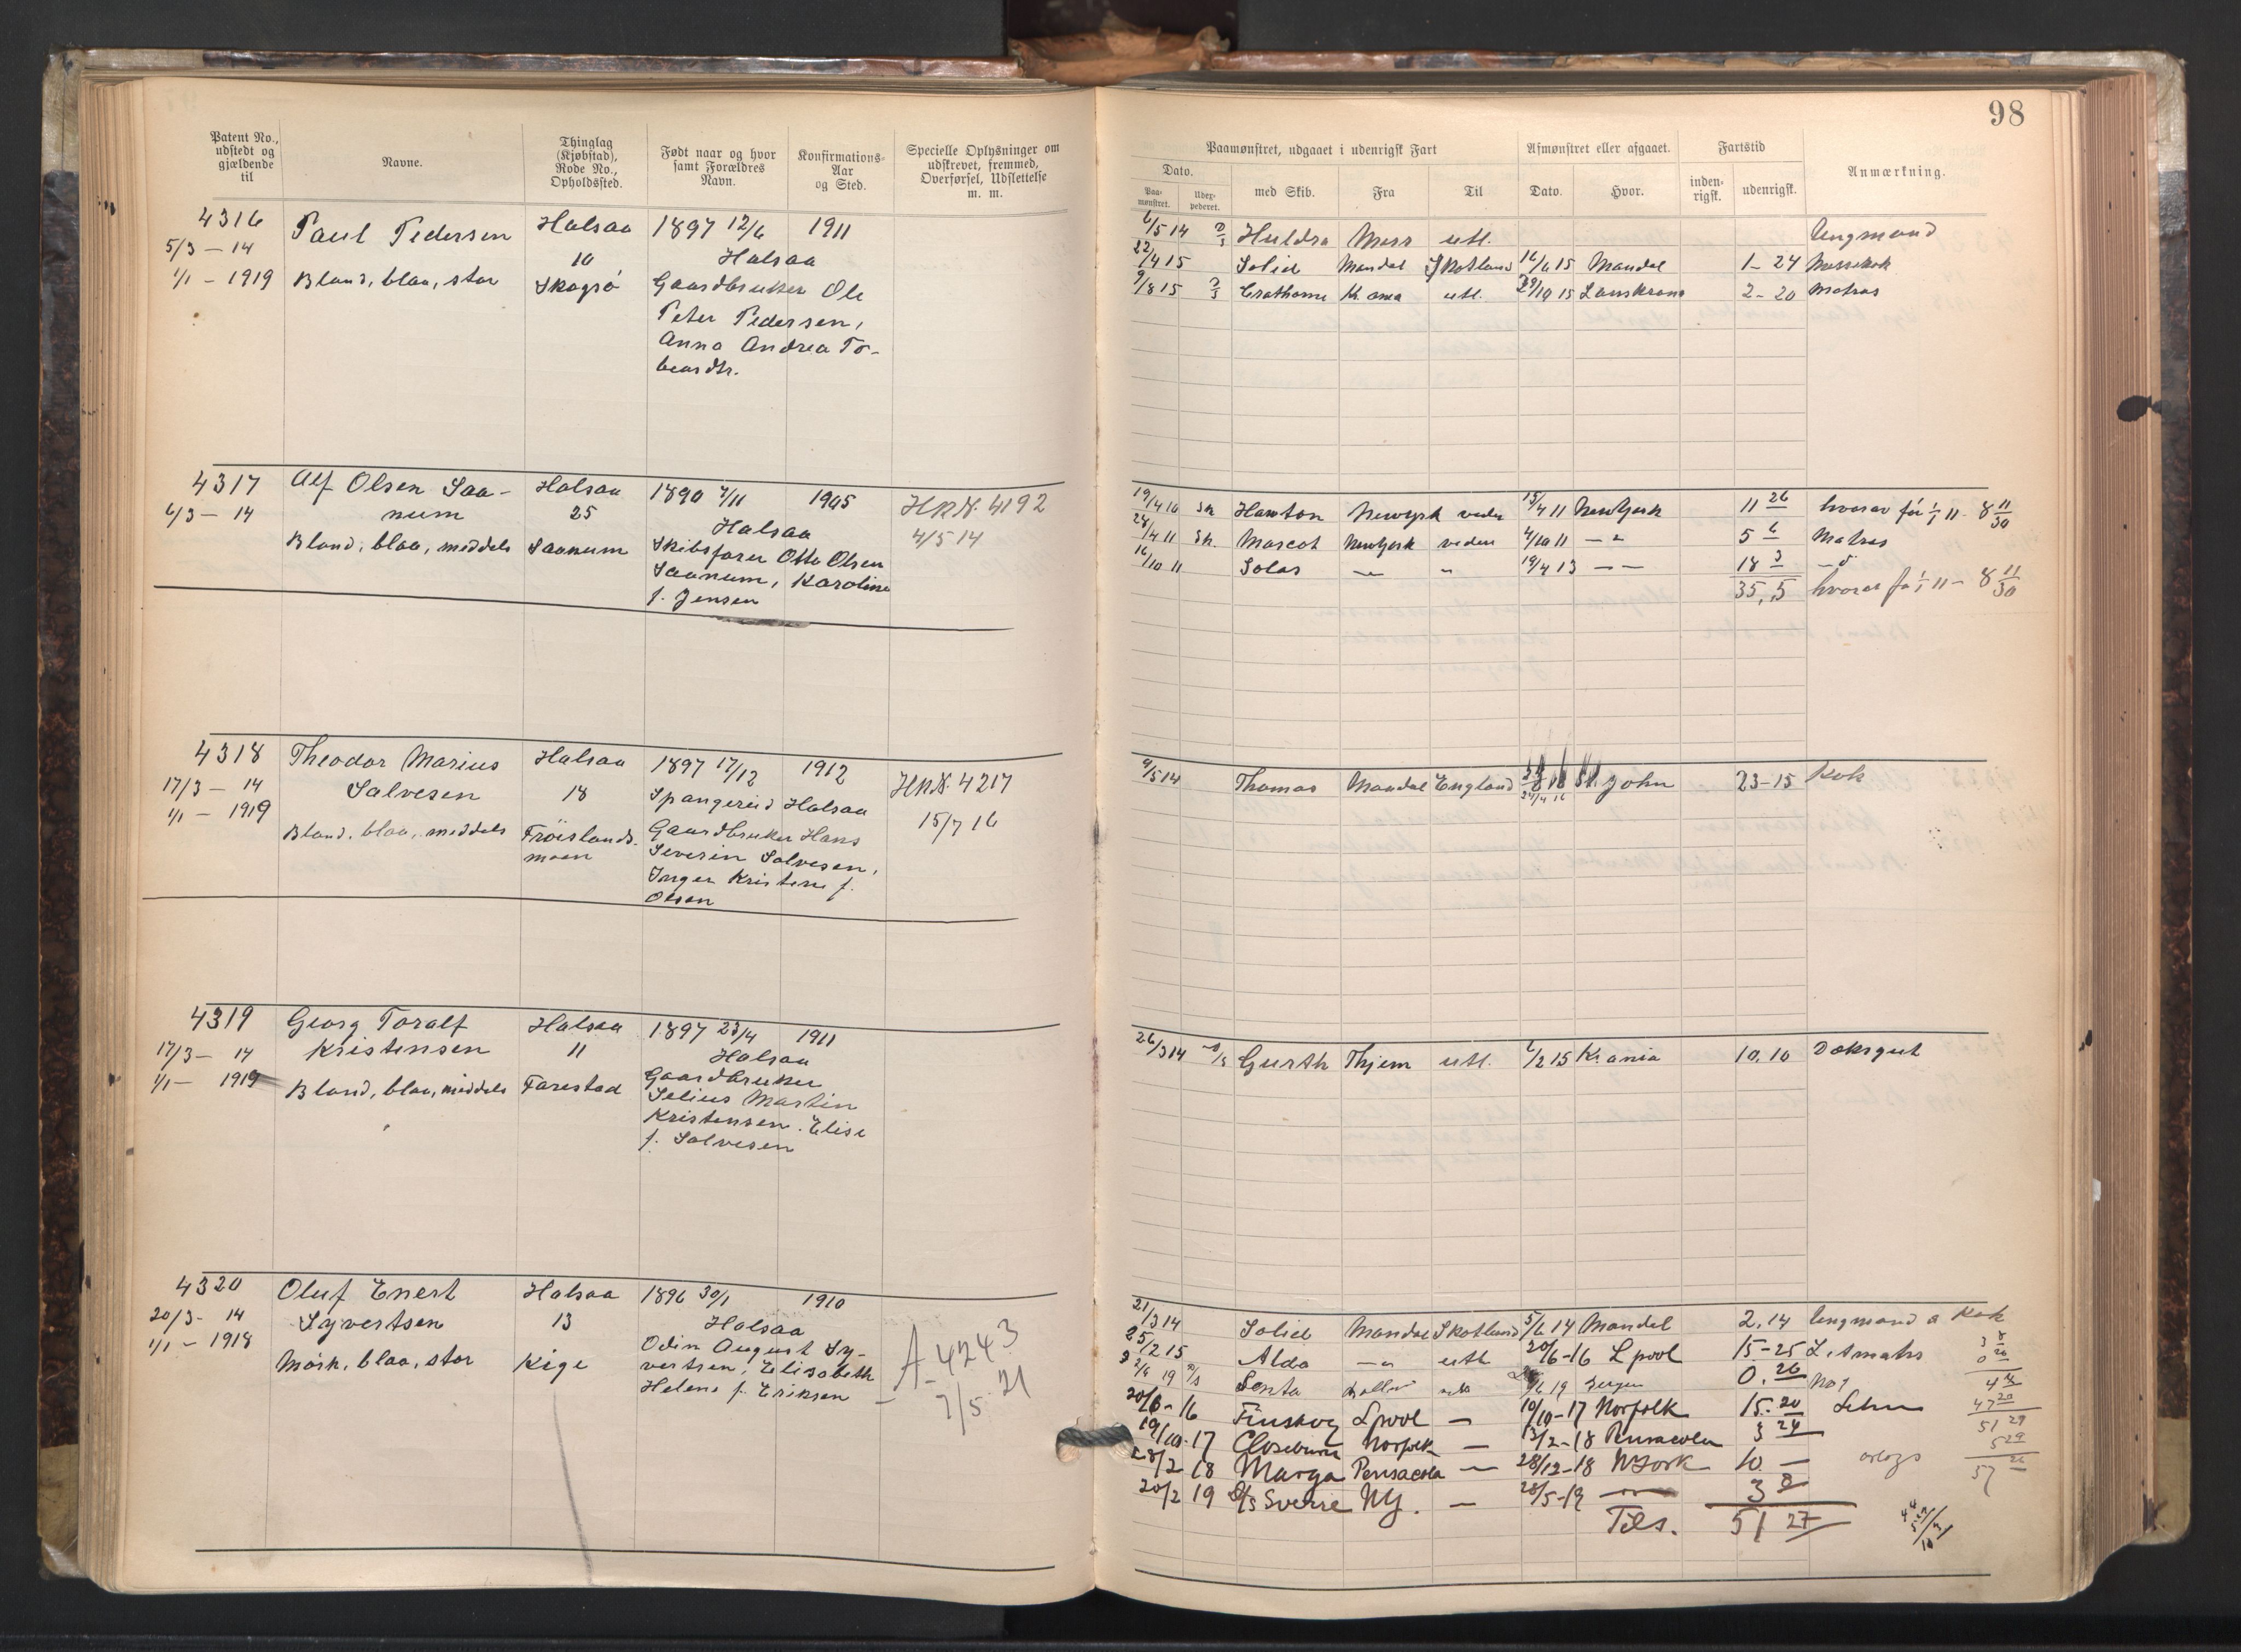 98
Patent No., udstedt og gjældende til
Navne.
Thinglag (Kjøbstad), Rode No., Opholdssted.
Født naar og hvor samt Forældres Navn.
Konfirmations-Aar og Sted.
Specielle Oplysninger om udskrevet, fremmed, Overførsel, Udslettelse m. m.
Paamønstret, udgaaet i udenrigsk Fart
Afmønstret eller afgaaet.
Fartstid
Anmærkning.
Dato.
Paamønstret.
Udexpederet.
med Skib.
Fra
Til
Dato.
Hvor.
indenrigsk.
udenrigsk.
4316 Paul Pedersen Halsaa 1897 12/6 1911
5/3 – 14 10 Halsaa
1/1 – 1919 Blond, blaa, stor Skogsø Gaardbruker Ole
Peter Pedersen,
Anna Andrea To-
beasdtr.
6/5 14 Huldra Moss utl. Ungmand
22/4 15 Solid Mandal Skotland 16/6 15 Mandal 1– 24 Messekok
9/8 15 Crathorne Kr.ania utl. 29/10 15 Lanskrona 2– 20 Matros
4317 Alf Olsen Saa- Halsaa 1890 7/11 1905 HRN. 4192
6/3 – 14 num 25 Halsaa 4/5 14
Blond, blaa, meddels Saanum Skibsfører Otto Olsen
Saanum, Karoline
f. Jensen
19/4 10 Sk Hawton Newyork veden 15/4 11 NewYork 11 26 hvorav før 1/1 11 – 8 11/30
28/4 11 Sk. Mascot Newyork veden 4/10 11 – " 5 6 Matros
16/10 11 Solas – " 19/4 13 – – 18 3 – d
35,,5 hvorav før 1/1 11 – 8 11/30
4318 Theodor Marius Halsaa 1897 17/12 1912 HRN. 4217
17/3 – 14 Salvesen 18 Spangereid Halsaa 15/7 16
1/1 – 1919 Blond, blaa, meddels Frøislands- Gaardbruker Hans
moen Severin Salvesen,
Inger Kristine f.
Olsen
9/5 14 Thomas Mandal England 24/4 16 St. John 23–15 Kok
4319 Georg Toralf Halsaa 1897 23/4 1911
17/3 – 14 Kristensen 11 Halsaa
1/1 – 1919 Blond, blaa, middels Farestad Gaardbruker
Selius Martin
Kristensen. Elise
f. Salvesen
26/3 14 Gurth Thjem utl. 6/2 15 Kr.ania 10.10 Doksgut
4320 Oluf Enert Halsaa 1896 30/1 1910
20/3 - 14 Syvertsen 13 Halsaa
1/1 – 1918 Mørk, blaa, stor Kige Odin August Sy-
vertsen, Elisabeth
Helene f. Eriksen
A – 4243
7/5 21
21/3 14 Solid Mandal Skotland 5/6 14 Mandal 2.14 Ungmand a Kok
25/2 15 Alda – " utl 20/6–16 Lpool 15–25 Letmatros
Senta utl 19 Bergen 0.26
20/6–16 Finsbury Lpool – 10/10–17 Norfolk 15.20
19/10–17 Closeburn Norfolk – 13/2–18 Pensacola 3 24
28/2 18 Marga Pensacola – 28/12–18 NYork 10 –
20/2 19 S/S Sverre NY. – 28/5–19 3 8
Tils. 51 27